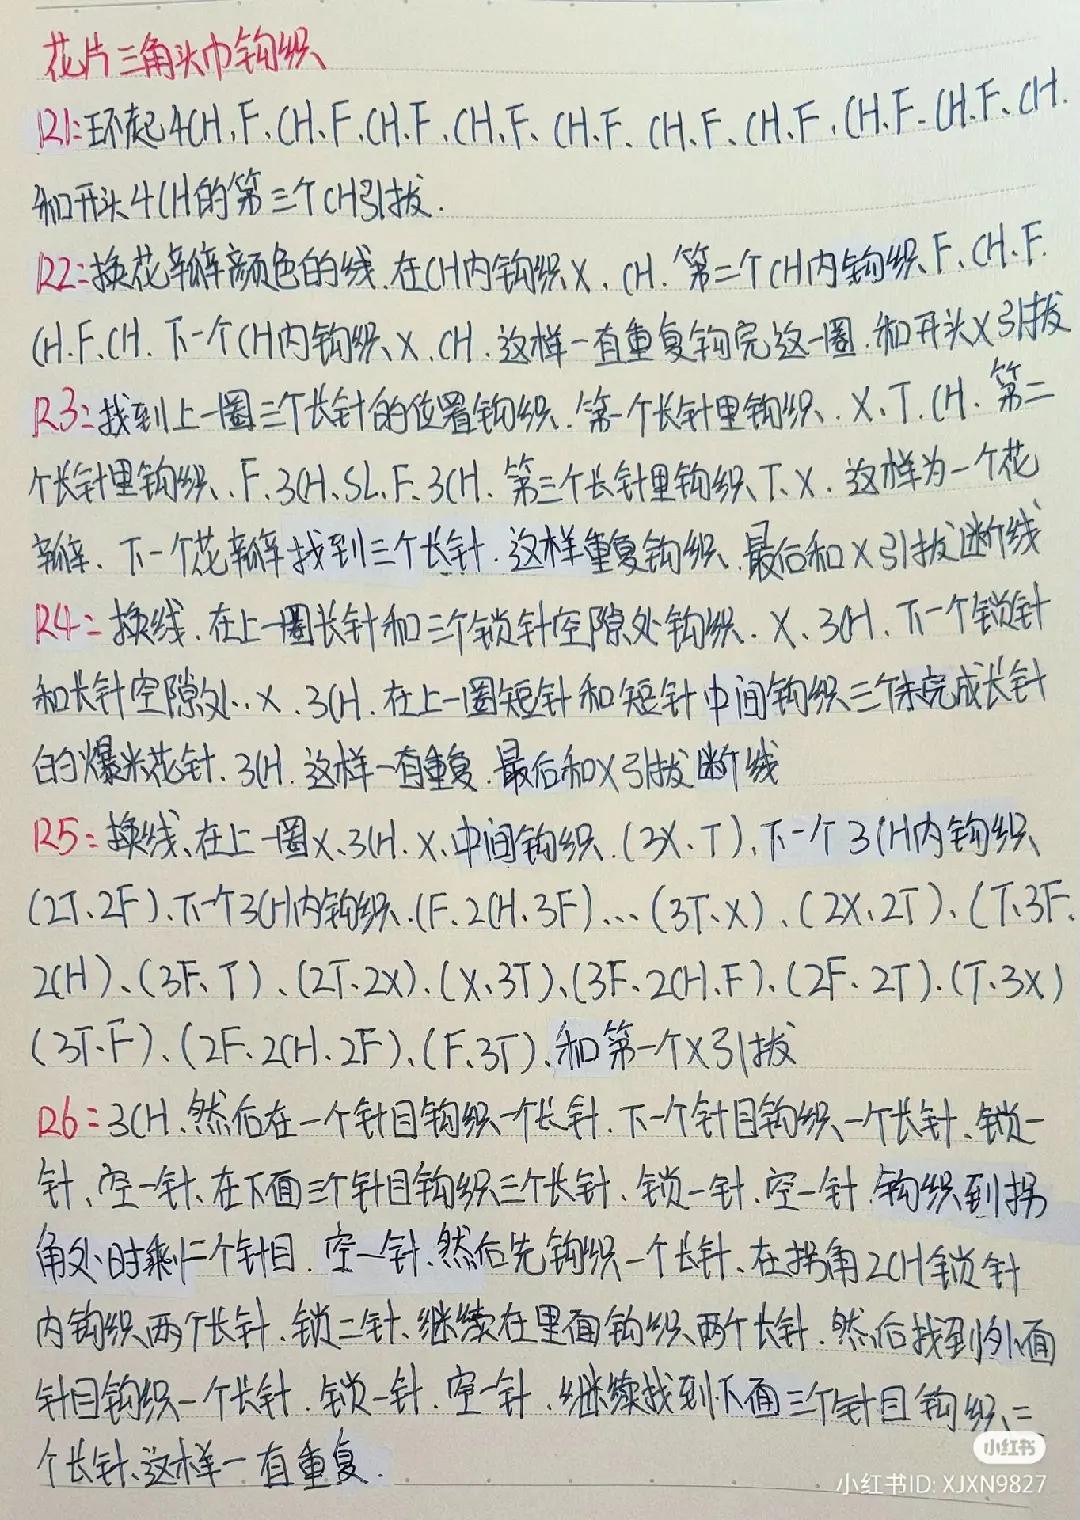 花片三角头巾钩织
R1:环起4CH、F、CH、F、CH、F、CH、F、CH、F、CH、F、CH、F、CH、F、CH、F、CH.
和开头4CH的第三个CH引拔.
R2:换花瓣颜色的线.在CH内钩织X、CH.第二个CH内钩织F、CH、F.
CH.F.CH.下一个CH内钩织X、CH.这样一直重复钩完这一圈.和开头X引拔
R3:找到上一圈三个长针的位置钩织.第一个长针里钩织、X、T、CH.第二
个长针里钩织、F、3CH、SL、F、3CH.第三个长针里钩织、T、X.这样为一个花
瓣.下一个花瓣找到三个长针.这样重复钩织、最后和X引拔断线
R4:换线、在上一圈长针和三个锁针空隙处钩织、X、3CH、下一个锁针
和长针空隙处、X、3CH.在上一圈短针和短针中间钩织三个未完成长针
的爆米花针.3CH.这样一直重复.最后和X引拔断线
R5:换线、在上一圈X、3CH、X、中间钩织.(3X、T)、下一个3CH内钩织、
(2T、2F)、下个3CH内钩织、(F、2CH、3F)...(3T、X)、(2X、2T)、(T、3F、
2CH)、(3F、T)、(2T、2X)、(X、3T)、(3F、2CH、F)、(2F、2T)、(T、3X)
(3T、F)、(2F、2CH、2F)、(F、3T)、和第一个X引拔
R6:3CH、然后在一个针目钩织一个长针.下一个针目钩织一个长针、锁一
针、空一针、在下面三个针目钩织三个长针、锁一针、空一针.钩织到拐
角处时剩二个针目.空一针、然后先钩织一个长针、在拐角2CH锁针
内钩织两个长针、锁二针、继续在里面钩织两个长针.然后找到外面
针目钩织一个长针、锁一针、空一针、继续找到下面三个针目钩织、三
个长针、这样一直重复.
小红书
小红书ID: XJXN9827